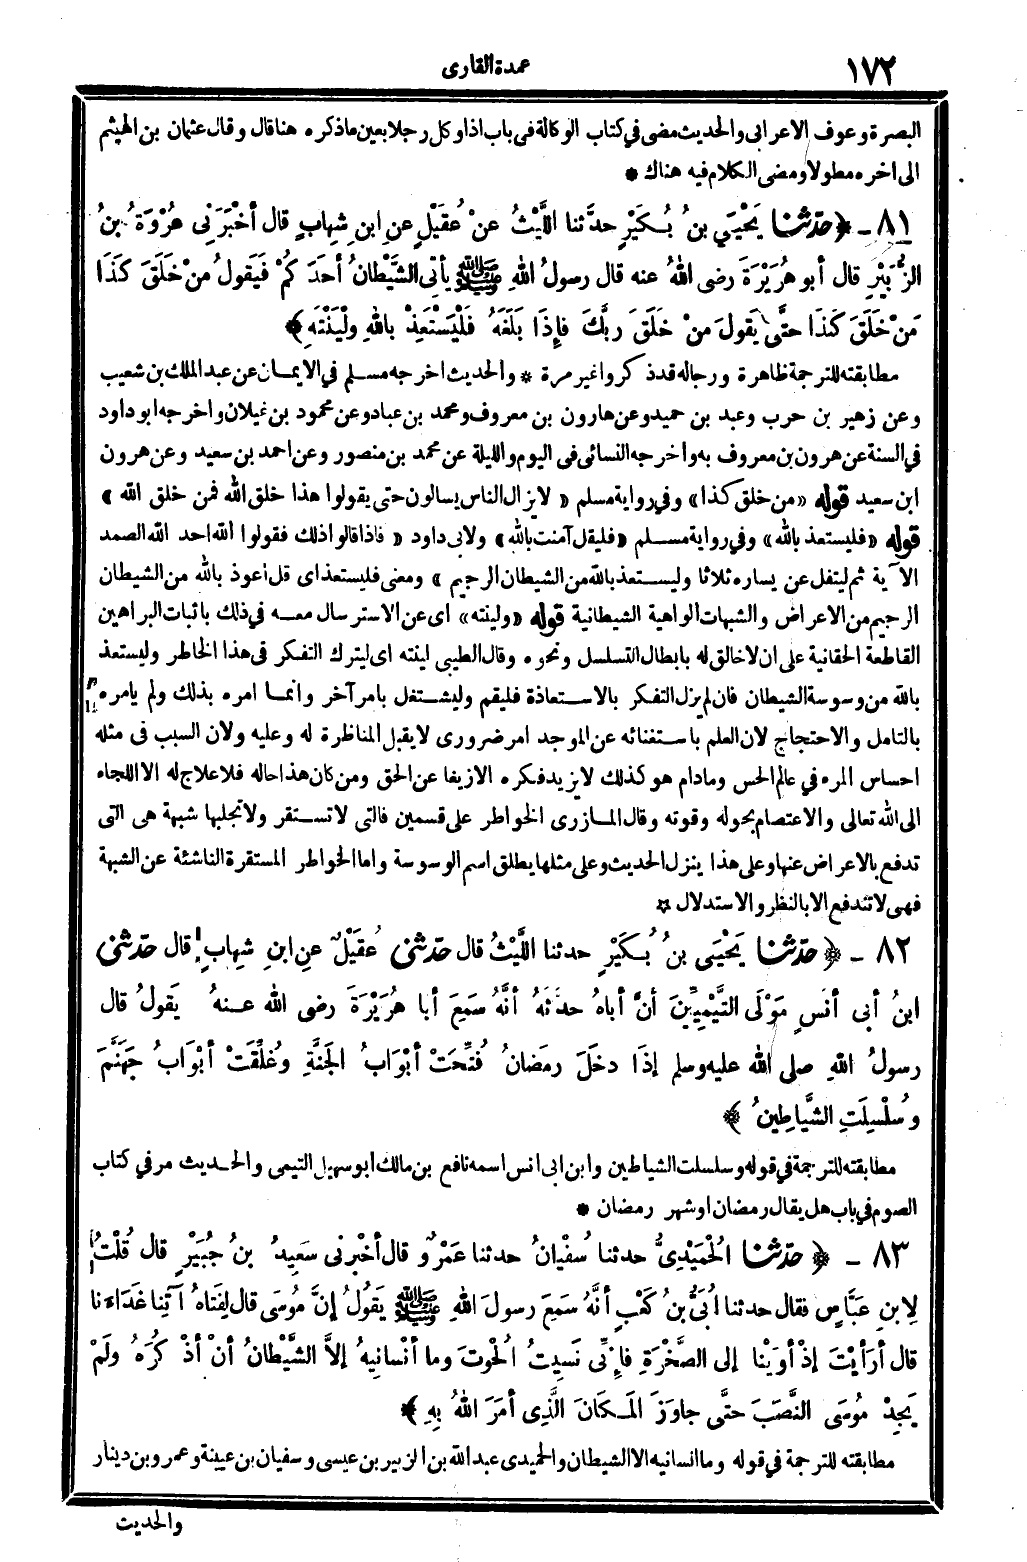 ١٧٢
عمدة القارى
البصرة وعوف الاعرابى والحديث مضى فى كتاب الوكالة فى باب اذا وكل رجلا بعين ما ذكره هنا قال وقال عثمان بن الهيثم
الى اخره مطولا ومضى الكلام فيه هناك *
٨١ - ﴿حدّثنا يَحْيَى بنُ بُكَيْرٍ حدَّثنا اللَّيْثُ عنْ عُقَيْلٍ عنِ ابنِ شِهابٍ قال أخْبَرَنِى عُرْوَةُ بنُ
الزُّبَيْرِ قال أبو هُرَيْرَةَ رضى اللهُ عنه قال رسولُ اللهِ ﷺ يأتِى الشَّيْطانُ أحَدَكُمْ فَيَقولُ منْ خَلَقَ كَذَا
مَنْ خَلَقَ كَذَا حتَّى يَقولَ منْ خَلَقَ ربَّكَ فإذَا بَلَغَهُ فَلْيَسْتَعِذْ باللهِ ولْيَنْتَهِ﴾
مطابقته للترجمة ظاهرة ورجاله قد ذكروا غير مرة * والحديث اخرجه مسلم فى الايمان عن عبد الملك بن شعيب
وعن زهير بن حرب وعبد بن حميد وعن هارون بن معروف ومحمد بن عباد وعن محمود بن غيلان واخرجه ابو داود
فى السنة عن هرون بن معروف به واخرجه النسائى فى اليوم والليلة عن محمد بن منصور وعن احمد بن سعيد وعن هرون
ابن سعيد قوله «من خلق كذا» وفى رواية مسلم «لايزال الناس يسالون حتى يقولوا هذا خلق الله فمن خلق الله»
قوله «فليستعذ بالله» وفى رواية مسلم «فليقل آمنت بالله» ولابى داود «فاذا قالوا ذلك فقولوا الله احد الله الصمد
الآية ثم ليتفل عن يساره ثلاثا وليستعذ بالله من الشيطان الرجيم» ومعنى فليستعذ اى قل اعوذ بالله من الشيطان
الرجيم من الاعراض والشبهات الواهية الشيطانية قوله «ولينته» اى عن الاسترسال معه فى ذلك باثبات البراهين
القاطعة الحقانية على ان لاخالق له بابطال التسلسل ونحوه وقال الطيبى لينته اى ليترك التفكر فى هذا الخاطر وليستعذ
بالله من وسوسة الشيطان فان لم يزل التفكر بالاستعاذة فليقم وليشتغل بامر آخر وانما امره بذلك ولم يامره
بالتامل والاحتجاج لان العلم باستغنائه عن الموجد امر ضرورى لايقبل المناظرة له وعليه ولان السبب فى مثله
احساس المرء فى عالم الحس ومادام هو كذلك لايزيد فكره الا زيغا عن الحق ومن كان هذا حاله فلا علاج له الا اللجاء
الى الله تعالى والاعتصام بحوله وقوته وقال المازرى الخواطر على قسمين فالتى لاتستقر ولا تجلبها شبهة هى التى
تدفع بالاعراض عنها وعلى هذا ينزل الحديث وعلى مثلها يطلق اسم الوسوسة واما الخواطر المستقرة الناشئة عن الشبهة
فهى لاتندفع الا بالنظر والاستدلال *
٨٢ - ﴿حدّثنا يَحْيَى بنُ بُكَيْرٍ حدثنا اللَّيْثُ قال حدّثنى عُقَيْلٌ عنِ ابنِ شِهابٍ قال حدّثنى
ابنُ أبى أنَسٍ مَوْلَى التَّيْمِيِّينَ أنَّ أباهُ حدثهُ أنَّهُ سَمِعَ أبا هُرَيْرَةَ رضى الله عنهُ يَقولُ قال
رسولُ اللهِ صلى الله عليه وسلم إذَا دخلَ رمَضانُ فُتِّحَتْ أبْوَابُ الجَنَّةِ وغُلِّقَتْ أبْوَابُ جَهَنَّمَ
وسُلْسِلَتِ الشَّياطِينُ﴾
مطابقته للترجمة فى قوله وسلسلت الشياطين وابن ابى انس اسمه نافع بن مالك ابو سهيل التيمى والحديث مر فى كتاب
الصوم فى باب هل يقال رمضان او شهر رمضان *
٨٣ - ﴿حدّثنا الحُمَيْدِىُّ حدثنا سُفْيانُ حدثنا عَمْرٌو قال أخْبرنِى سَعِيدُ بنُ جُبَيْرٍ قال قُلْتُ
لِابنِ عَبَّاسٍ فقال حدثنا أُبَىُّ بنُ كَعْبٍ أنَّهُ سَمِعَ رسولَ اللهِ ﷺ يَقُولُ إنَّ مُوسَى قال لِفَتاهُ آتِنا غَدَاءَنا
قال أرَأيْتَ إذْ أوَيْنا إلى الصَّخْرَةِ فإنِّى نَسِيتُ الحُوتَ وما أنْسانِيهُ إلاَّ الشَّيْطانُ أنْ أذْكُرَهُ ولَمْ
يَجِدْ مُوسَى النَّصَبَ حتَّى جاوَزَ المَكانَ الَّذِى أمَرَ اللهُ بِهِ﴾
مطابقته للترجمة فى قوله وما انسانيه الا الشيطان والحميدى عبد الله بن الزبير بن عيسى وسفيان بن عيينة وعمرو بن دينار
والحديث